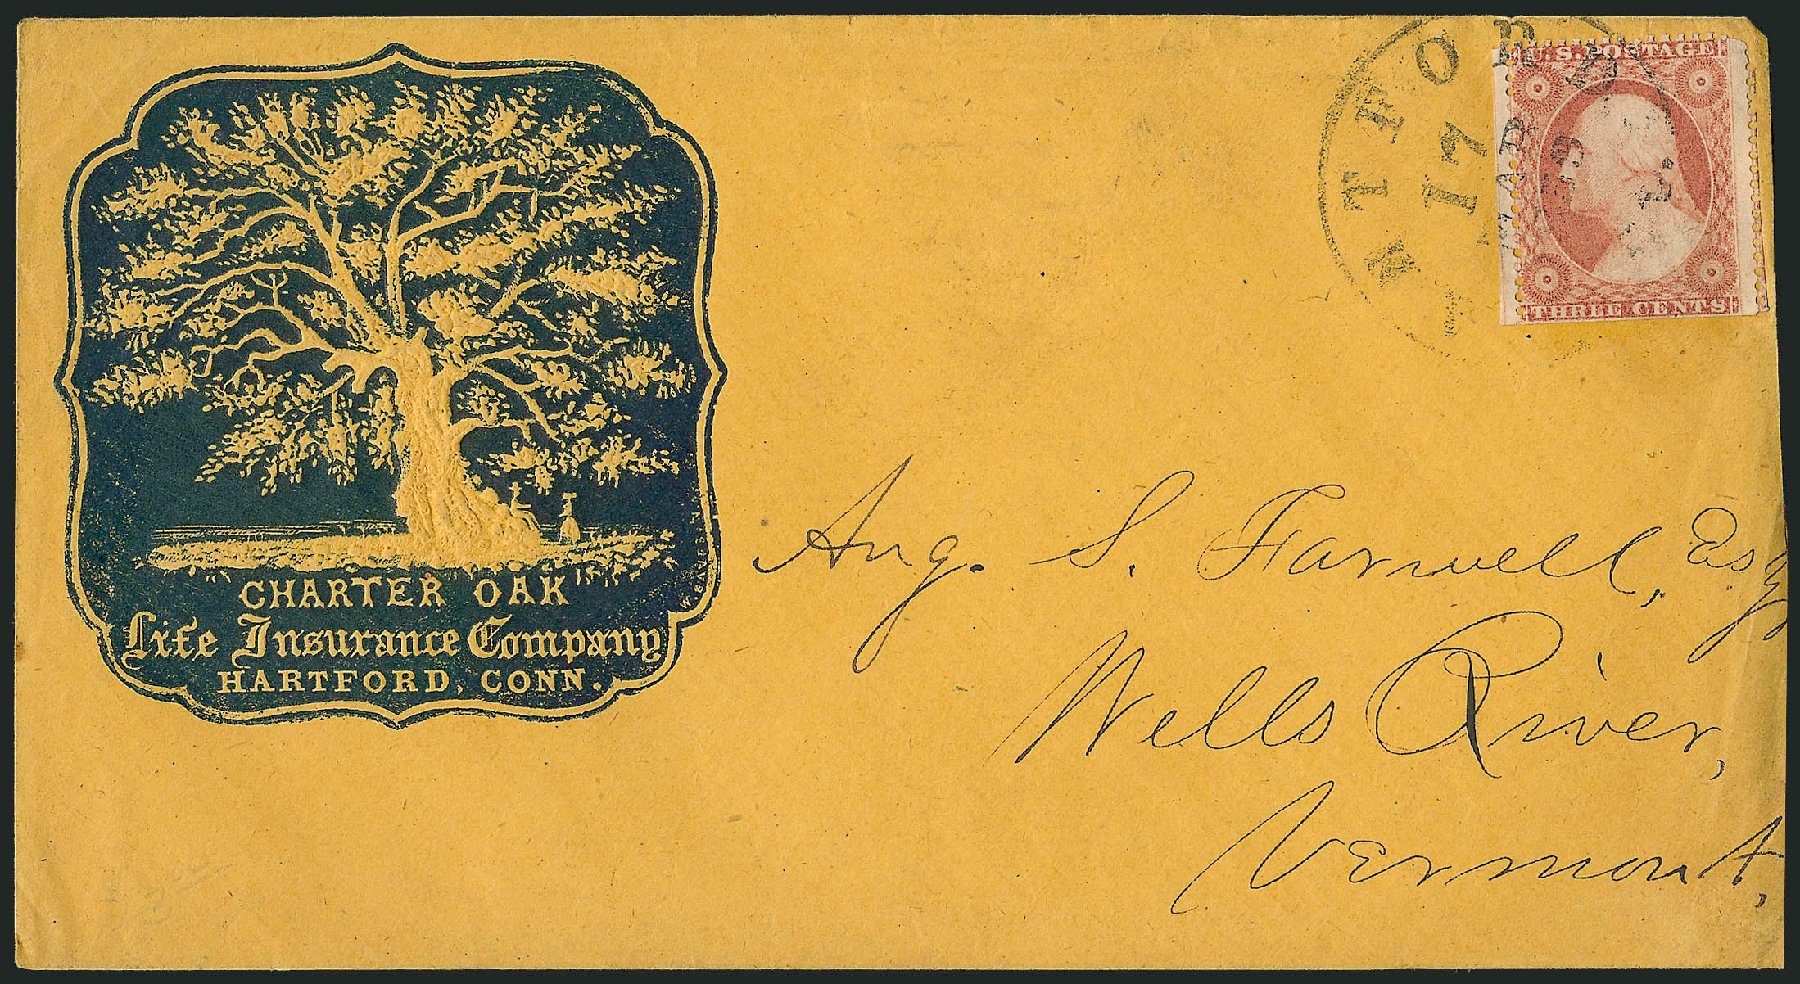 CHARTER OAK
Life Insurance Company
HARTFORD, CONN.
17
MAR
U.S. POSTAGE
THREE CENTS
Aug. S. Farwell, Esq
Wells River,
Vermont,